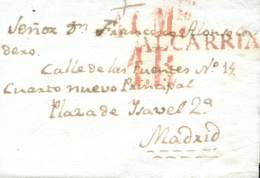 Señor Dn Francisco Alonso Cor
dero.
ALCARRIA
Calle de las Fuentes Nº 14
Cuarto nuevo Principal
Plaza de Isavel 2ª
Madrid